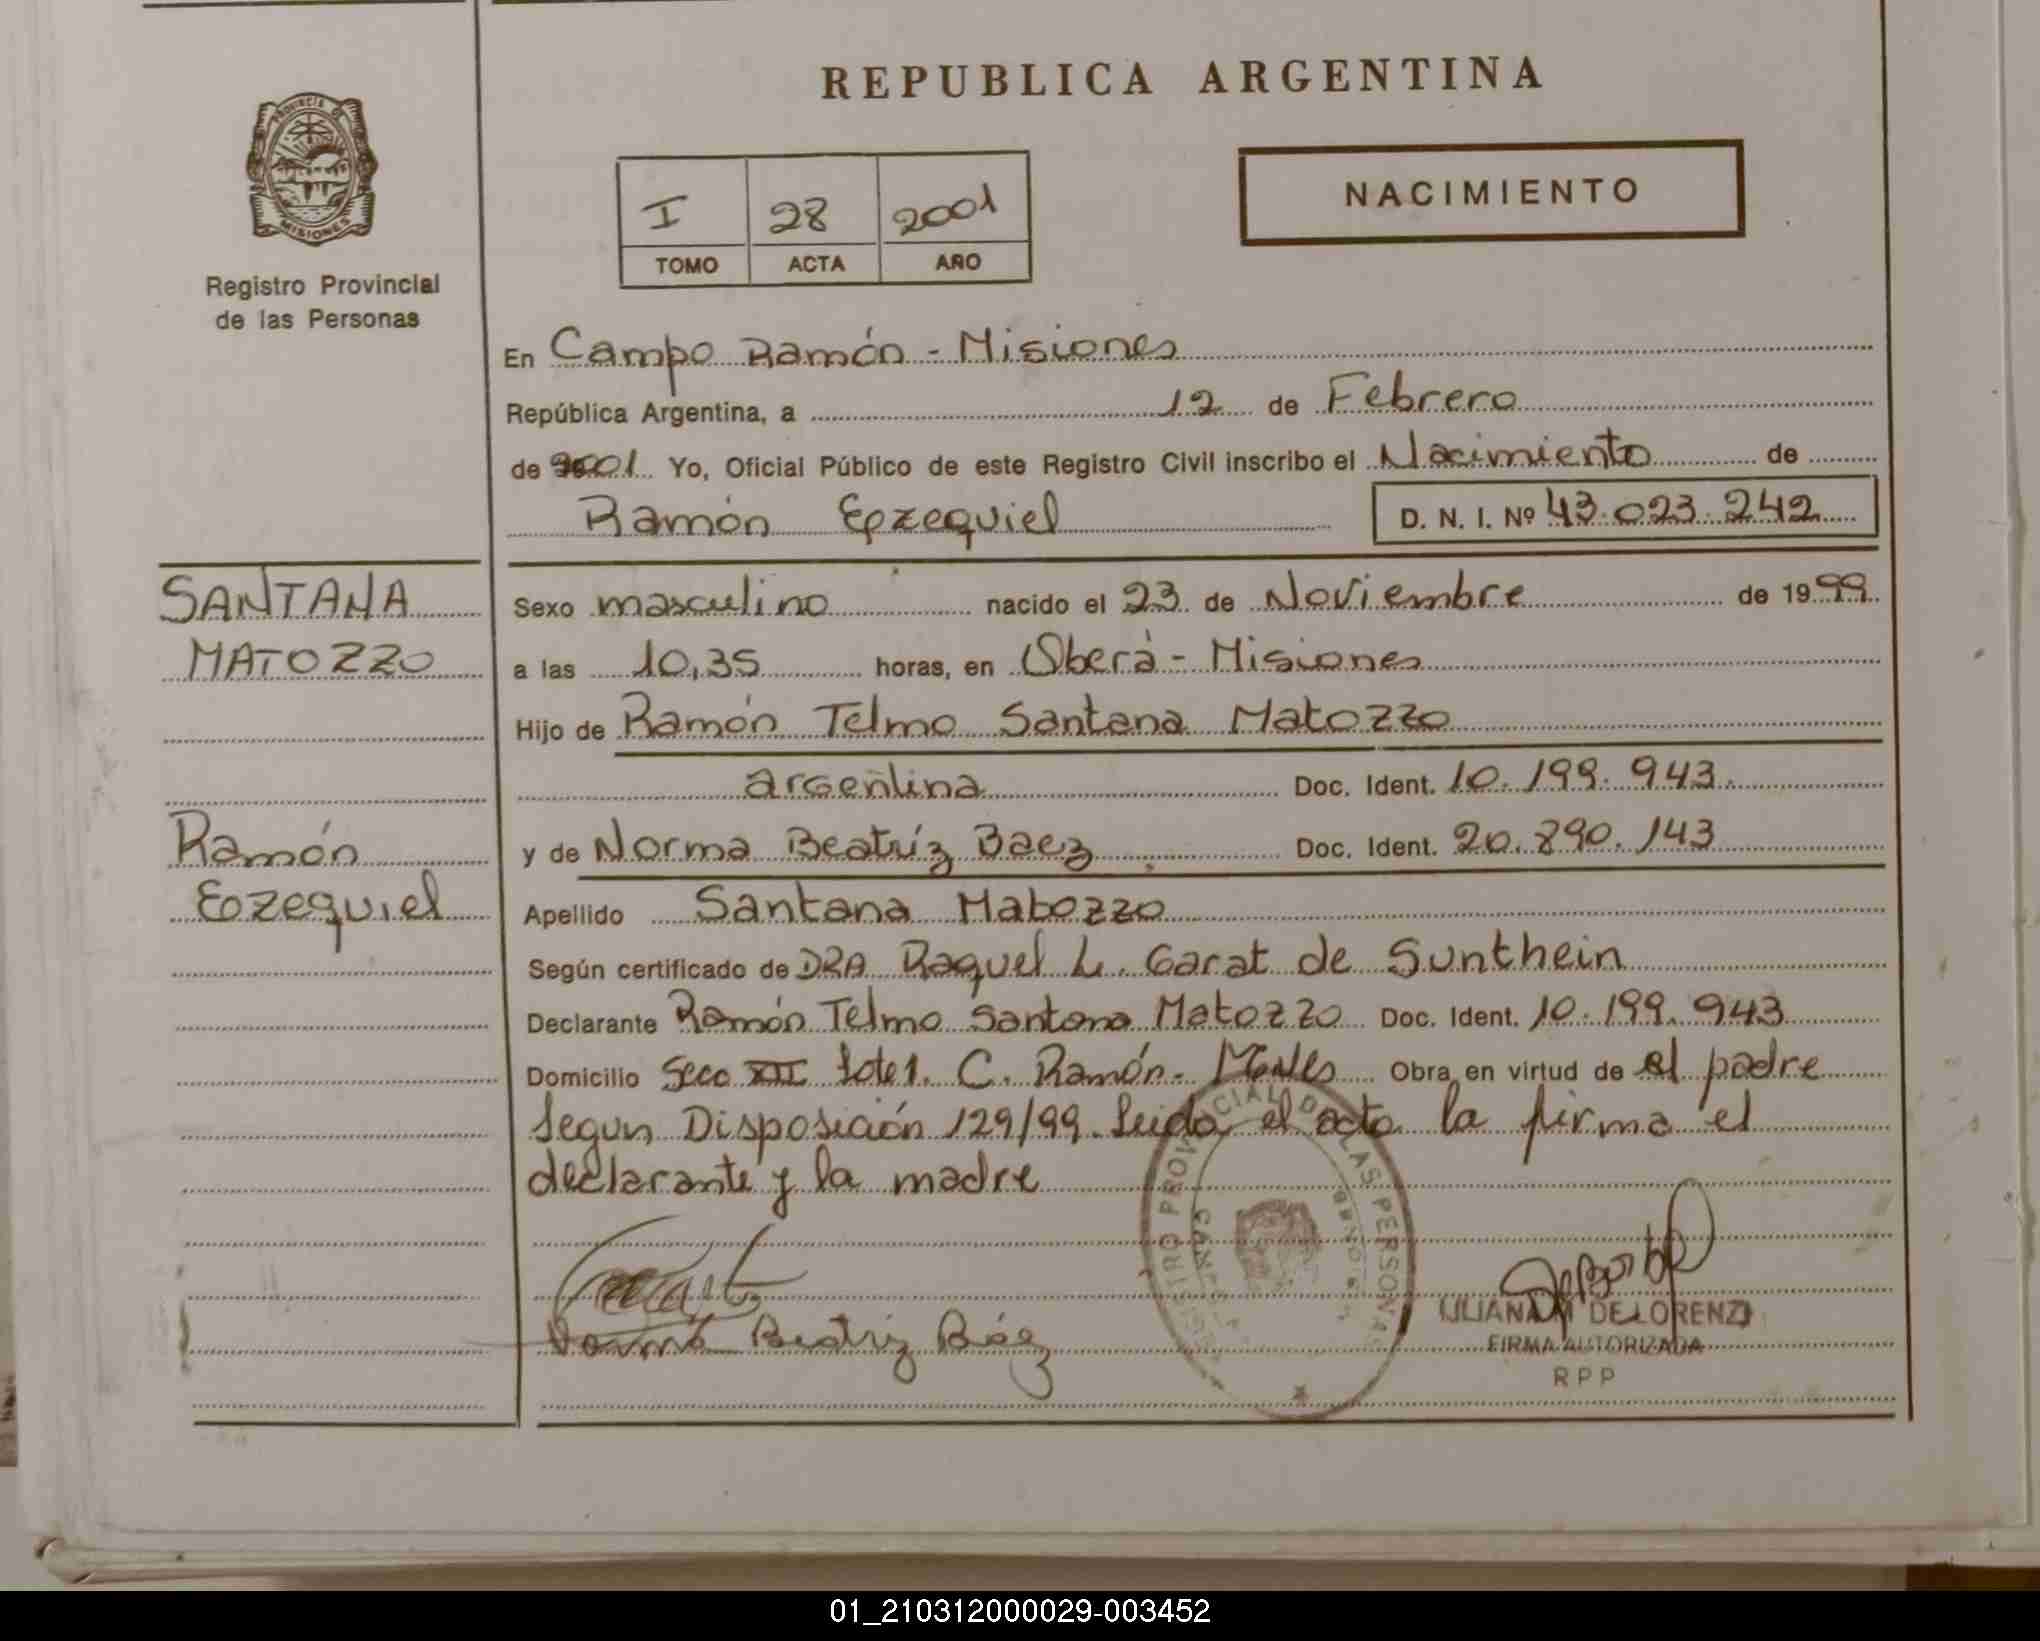 REPUBLICA ARGENTINA
PROVINCIA DE
MISIONES
Registro Provincial
de las Personas
I 28 2001
TOMO ACTA AÑO
NACIMIENTO
En Campo Ramón - Misiones
República Argentina, a 12 de Febrero
de 2001 Yo, Oficial Público de este Registro Civil inscribo el Nacimiento de
Ramón Ezequiel D. N. I. Nº 43.023.242
SANTANA
MATOZZO
Ramón
Ezequiel
Sexo masculino nacido el 23 de Noviembre de 1999
a las 10,35 horas, en Oberá - Misiones
Hijo de Ramón Telmo Santana Matozzo
argentina Doc. Ident. 10.199.943.
y de Norma Beatríz Baez Doc. Ident. 20.890.143
Apellido Santana Matozzo
Según certificado de DRA Raquel L. Garat de Sunthein
Declarante Ramón Telmo Santana Matozzo Doc. Ident. 10.199.943
Domicilio Secc XII lote 1. C. Ramón - Obra en virtud de el padre
Segun Disposición 129/99. Leida el acta la firma el
declarante y la madre
Norma Beatriz Báez
REGISTRO PROVINCIAL DE LAS PERSONAS
LILIANA M DE LORENZI
FIRMA AUTORIZADA
RPP
01_210312000029-003452